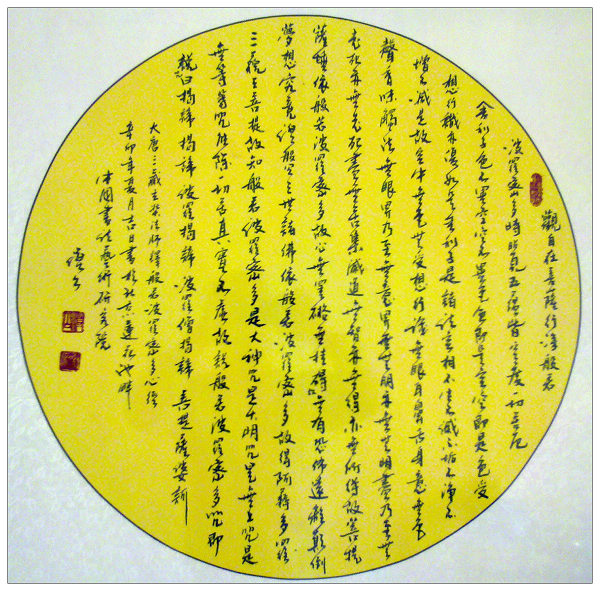 觀自在菩薩行深般若
波羅蜜多時照見五蘊皆空度一切苦厄
舍利子色不異空空不異色色即是空空即是色受
想行識亦復如是舍利子是諸法空相不生不滅不垢不淨不
增不減是故空中無色無受想行識無眼耳鼻舌身意無色
聲香味觸法無眼界乃至無意界無無明亦無無明盡乃至無
老死亦無老死盡無苦集滅道無智亦無得亦無所得故菩提
薩埵依般若波羅蜜多故心無罣礙無掛碍無有恐怖遠離顛倒
夢想究竟涅般三世諸佛依般若波羅蜜多故得阿耨多羅
三藐三菩提故知般若波羅蜜多是大神咒是大明咒是無上咒是
無等等咒能除一切苦真實不虛故說般若波羅蜜多咒即
說曰揭諦揭諦波羅揭諦波羅僧揭諦菩提薩婆訶
大唐三藏玄奘法師譯般若波羅蜜多心經
辛卯年夏月吉日書於北京蓮花池畔
中國書法藝術研究院